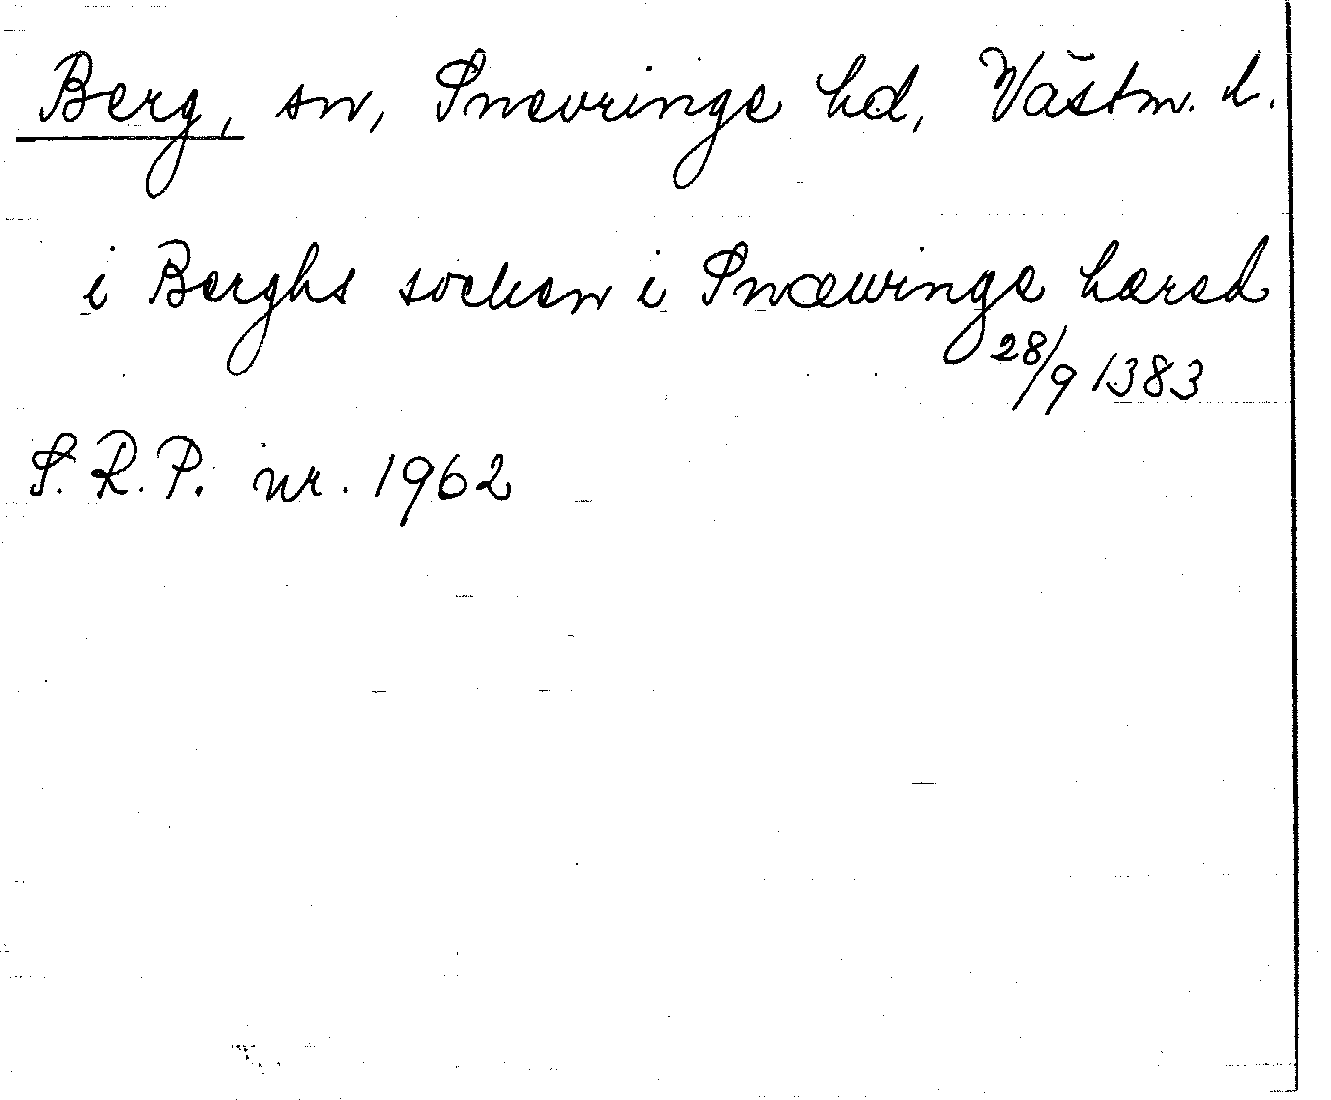 Berg, sn, Snevringe hd, Västm. l.
i Berghs sochen i Snæwinge hæred
28/9 1383
S.R.P. nr. 1962